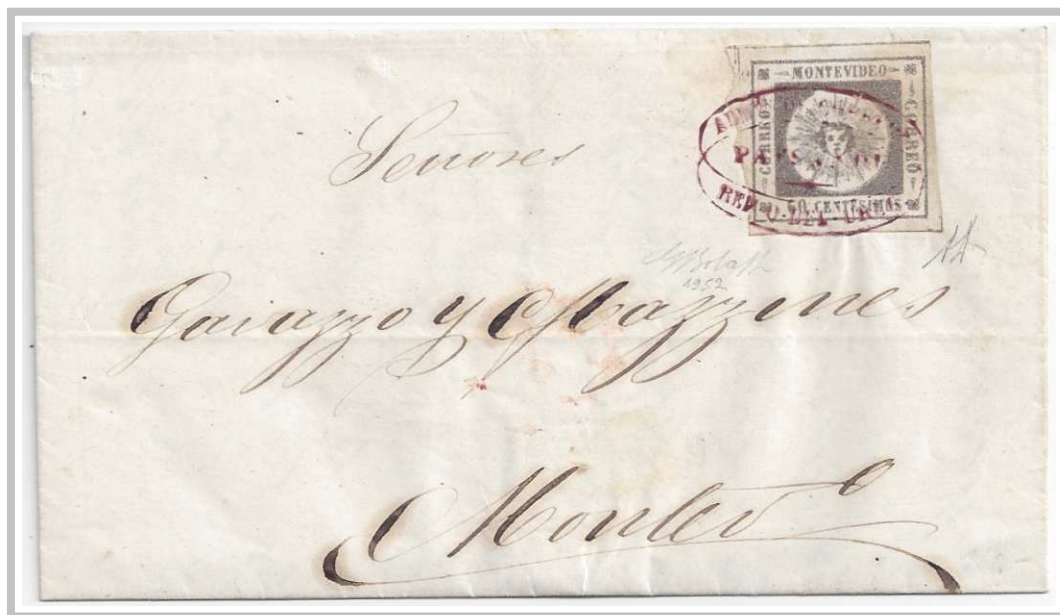 MONTEVIDEO
CORREO
CORREO
60 CENTESIMOS
REP. O. DEL UR
Señores
1952
Gavazzo y Mazzones
Montevº